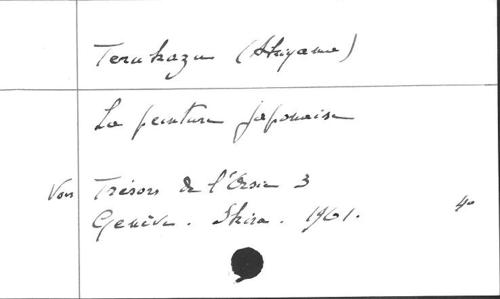 Terukazu (Akiyama)
La peinture japonaise
Voir Trésors de l'Asie 3
Genève. Skira. 1961. 4°